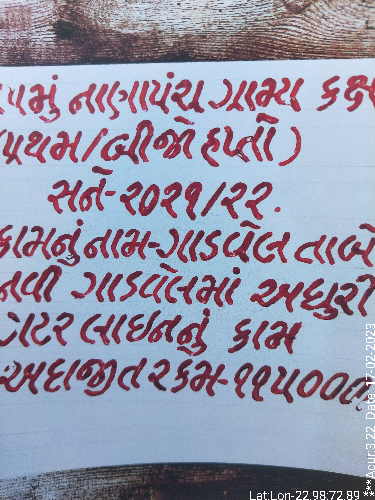 ૧૫મું નાણાપંચ ગ્રામ્ય કક્ષ
(પ્રથમ/બીજો હપ્તો)
સને-૨૦૨૧/૨૨.
કામનું નામ-ગાડવેલ તાબે
નવી ગાડવેલમાં અધુરી
ગટર લાઇનનું કામ
અદાજીત રકમ-૧૧૫૦૦૦/
Lat:Lon-22.98:72.89 ***Acur:3.22 Date:17-02-2023